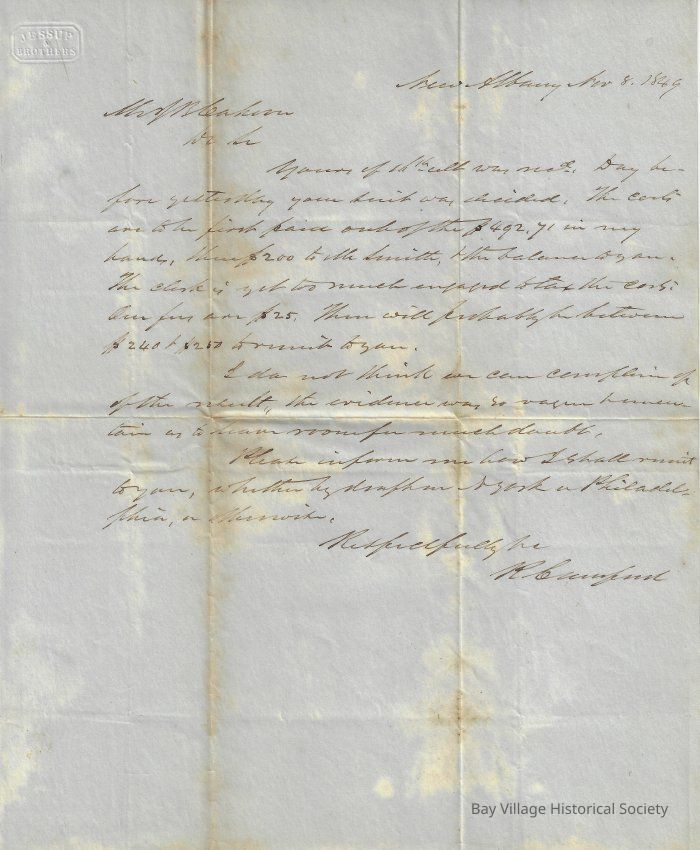 JESSUP
&
BROTHERS
New Albany Nov 8. 1849
Mr J R Cahoon
Dr Sir
Yours of ult was recd. Day be-
fore yesterday your suit was decided. The costs
are to be first paid out of the $492,71 in my
hands, then $200 to Mr Smith, & the balance to you.
The clerk is yet too much engaged to tax the costs.
Our fees are $25. There will probably be between
$240 & $250 to remit to you.
I do not think we can complain of
of the result, the evidence was so vague & uncer-
tain as to leave room for much doubt.
Please inform me how I shall remit
to you, whether by draft on N York or Philadel-
phia, or otherwise.
Respectfully &c
R Crawford
Bay Village Historical Society